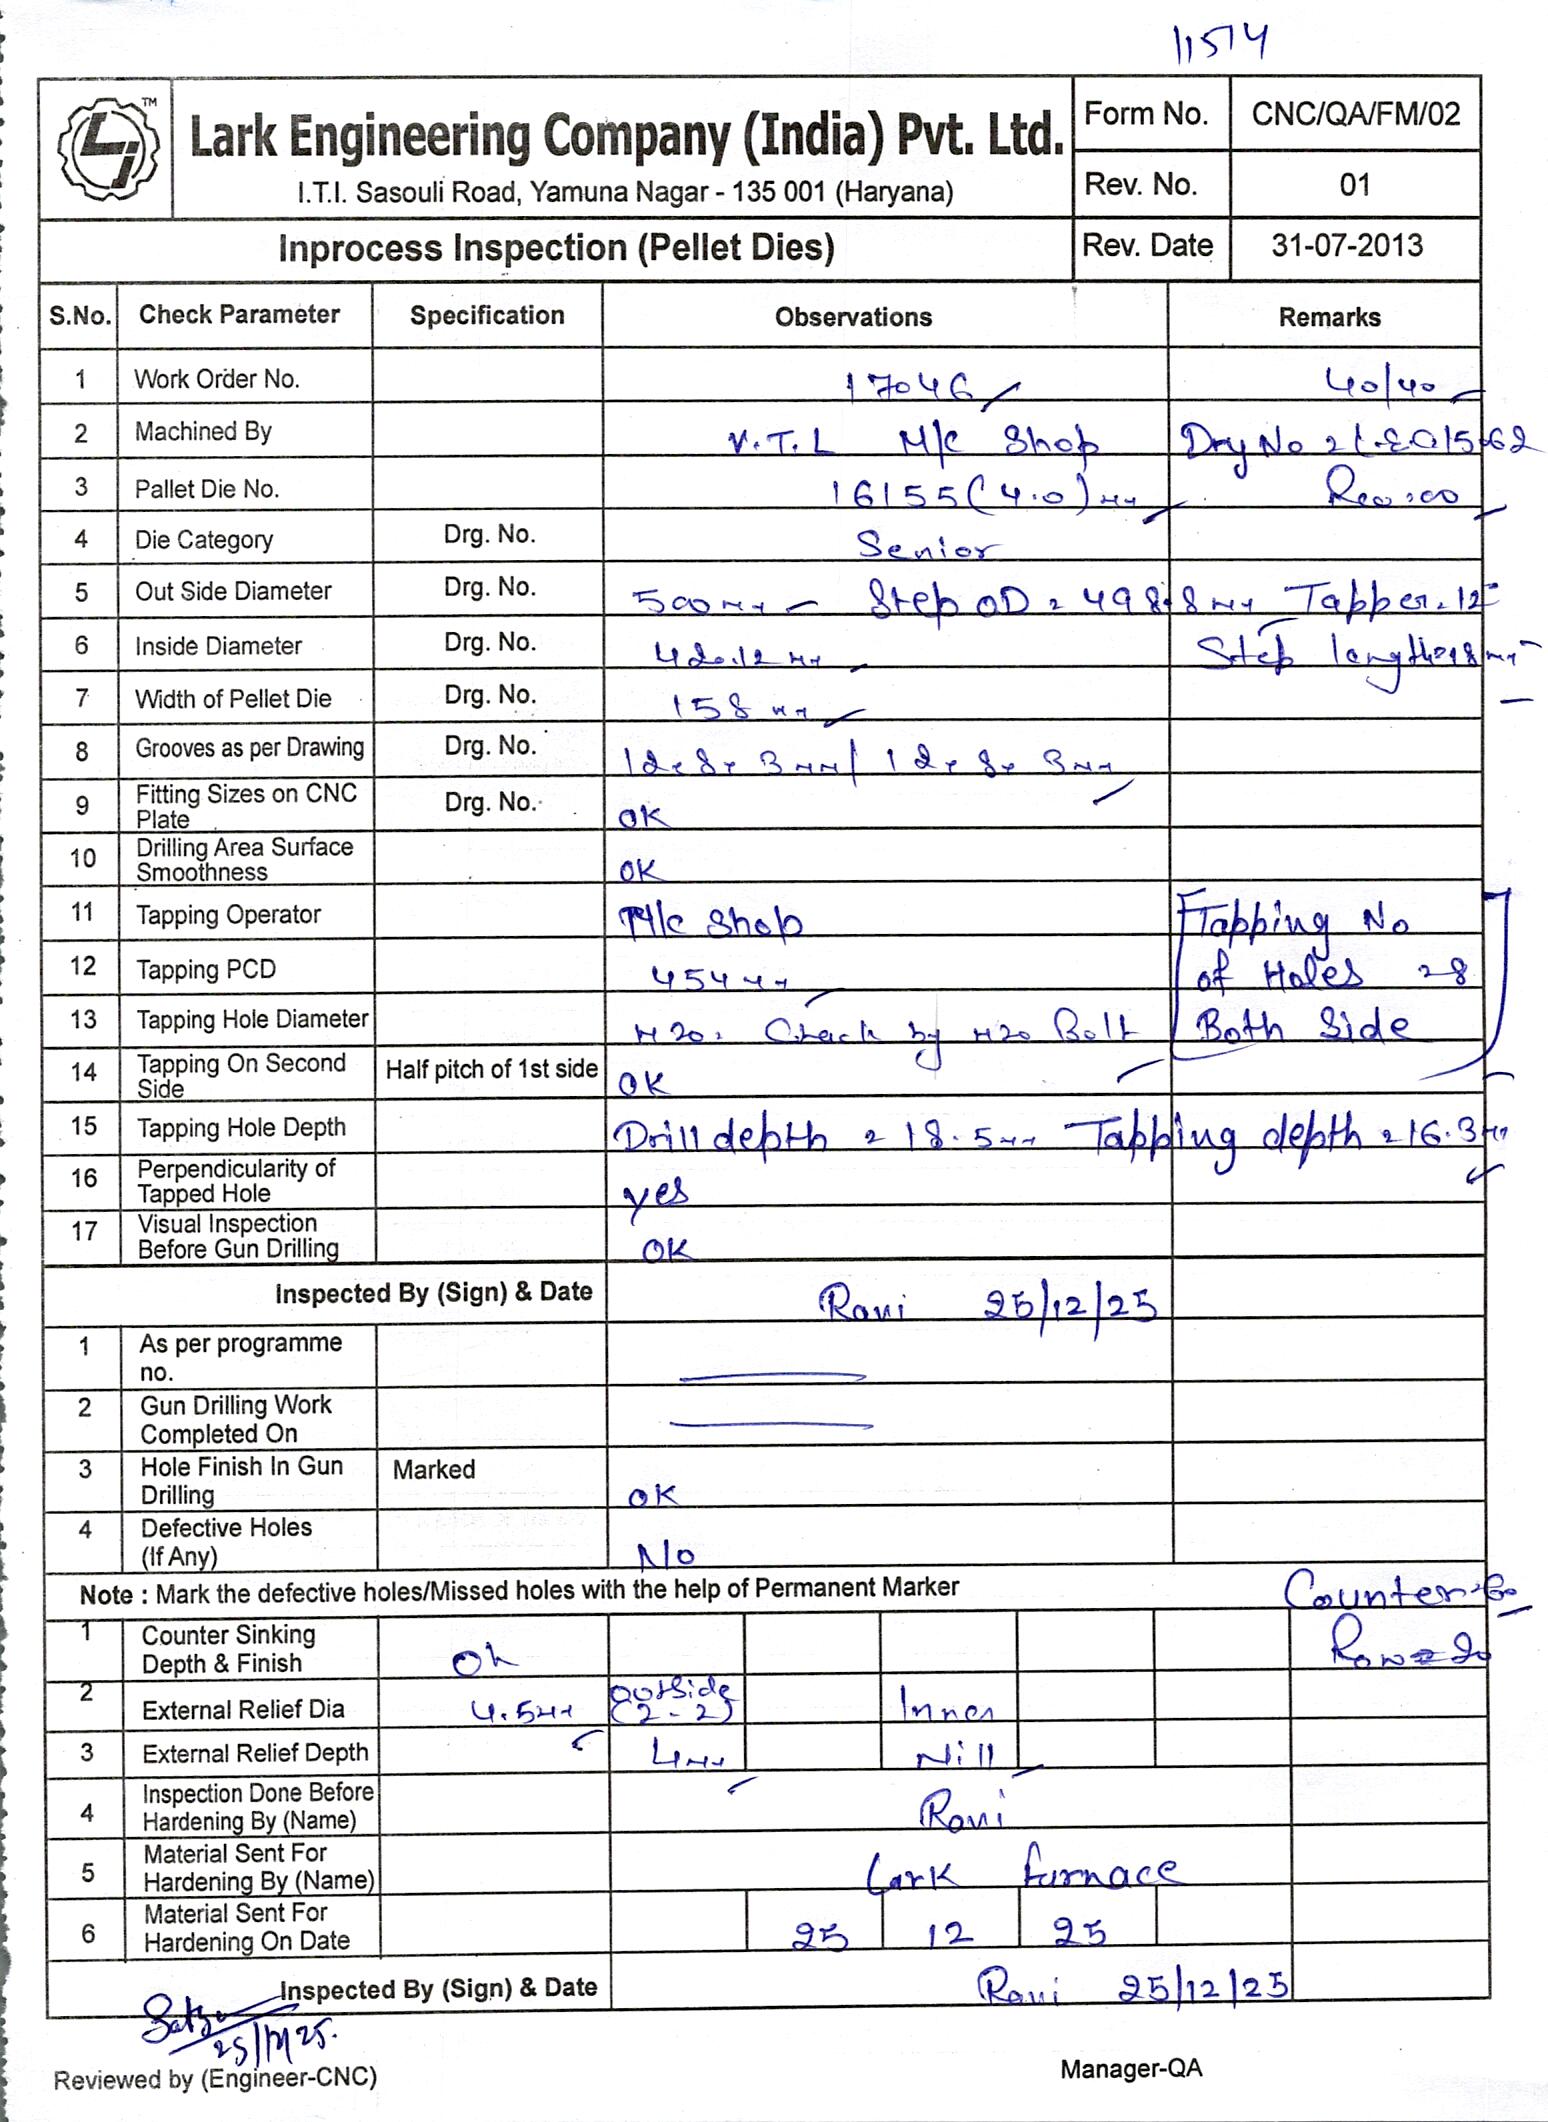 11514
TM
Lark Engineering Company (India) Pvt. Ltd.
I.T.I. Sasouli Road, Yamuna Nagar - 135 001 (Haryana)
Form No. CNC/QA/FM/02
Rev. No. 01
Inprocess Inspection (Pellet Dies) Rev. Date 31-07-2013
S.No. Check Parameter Specification Observations Remarks
1 Work Order No. 17046 40/40
2 Machined By V.T.L M/c Shop Drg No
3 Pallet Die No. 16155 (4.0) mm
4 Die Category Drg. No. Senior
5 Out Side Diameter Drg. No. 500 mm Step OD = 498.8 mm Tapper = 12
6 Inside Diameter Drg. No. 420.12 mm Step length = 18 mm
7 Width of Pellet Die Drg. No. 158 mm
8 Grooves as per Drawing Drg. No. 12 x 8 x 3 mm / 12 x 8 x 3 mm
9 Fitting Sizes on CNC Plate Drg. No. OK
10 Drilling Area Surface Smoothness OK
11 Tapping Operator M/c Shop Tapping No
12 Tapping PCD 454 mm of Holes = 8
13 Tapping Hole Diameter M20 = Check by M20 Bolt Both Side
14 Tapping On Second Side Half pitch of 1st side OK
15 Tapping Hole Depth Drill depth = 18.5 mm Tapping depth = 16.3 mm
16 Perpendicularity of Tapped Hole yes
17 Visual Inspection Before Gun Drilling OK
Inspected By (Sign) & Date Ravi 25/12/25
1 As per programme no.
2 Gun Drilling Work Completed On
3 Hole Finish In Gun Drilling Marked OK
4 Defective Holes (If Any) No
Note : Mark the defective holes/Missed holes with the help of Permanent Marker Counter = 60
1 Counter Sinking Depth & Finish Ok Row = 20
2 External Relief Dia 4.5 mm Outside (2-2) Inner
3 External Relief Depth 4 mm Nill
4 Inspection Done Before Hardening By (Name) Ravi
5 Material Sent For Hardening By (Name) Lark furnace
6 Material Sent For Hardening On Date 25 12 25
Inspected By (Sign) & Date Ravi 25/12/25
25/12/25.
Reviewed by (Engineer-CNC) Manager-QA